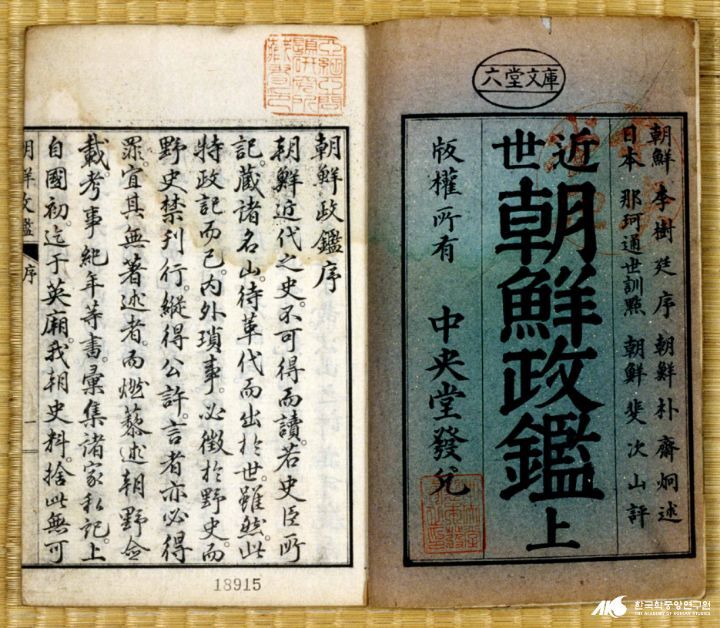 六堂文庫
朝鮮 李樹廷 序 朝鮮 朴齊炯 述
日本 那珂通世訓點 朝鮮 裴次山 評
近世
朝鮮政鑑上
版權所有 中央堂發兌
朝鮮政鑑序
朝鮮近代之史。不可得而讀。若史臣所
記。藏諸名山。待革代而出於世。雖然。此
特政記而已。內外瑣事。必徵於野史。而
野史禁刊行。縱得公許。言者亦必得
罪。宜其無著述者。而燃藜述。朝野僉
載。考事。紀年等書。彙集諸家私記。上
自國初。迄于英廟。我朝史料。捨此無可
朝鮮政鑑 序 一
18915
AKS 한국학중앙연구원
THE ACADEMY OF KOREAN STUDIES